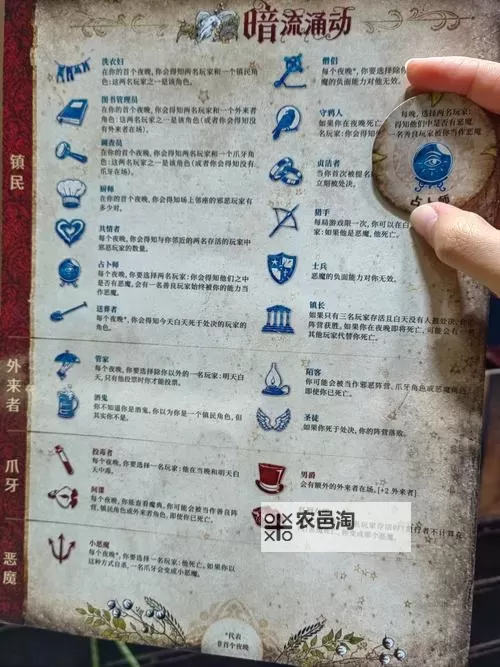 暗流涌动
镇民
洗衣妇
在你的首个夜晚,你会得知两名玩家和一个镇民角
色:这两名玩家之一是该角色。
图书管理员
在你的首个夜晚,你会得知两名玩家和一个外来者
角色:这两名玩家之一是该角色(或者你会得知没
有外来者在场)。
调查员
在你的首个夜晚,你会得知两名玩家和一个爪牙角
色:这两名玩家之一是该角色(或者你会得知没有
爪牙在场)。
厨师
在你的首个夜晚,你会得知场上邻座的邪恶玩家有
多少对。
共情者
每个夜晚,你会得知与你邻近的两名存活的玩家中
邪恶玩家的数量。
占卜师
每个夜晚,你要选择两名玩家:你会得知他们之中
是否有恶魔。会有一名善良玩家始终被你的能力当
作恶魔。
送葬者
每个夜晚*,你会得知今天白天死于处决的玩家的
角色。
僧侣
每个夜晚*,你要选择除你
魔的负面能力对你无效。
守鸦人
如果你在夜晚死亡
名玩家:你会得知
贞洁者
当你首次被提名
立刻被处决。
猎手
每局游戏限一次,你可以在白
家:如果他是恶魔,他死亡。
士兵
恶魔的负面能力对你无效。
镇长
如果只有三名玩家存活且白天没有人被处决,
阵营获胜。如果你在夜晚即将死亡,可能会有一
其他玩家代替你死亡。
每晚,选择两名玩家:
得知他们中是否有恶魔
一名善良玩家被你当作恶魔
占卜师
外来者
管家
每个夜晚,你要选择除你以外的一名玩家:明天白
天,只有他投票时你才能投票。
酒鬼
你不知道你是酒鬼。你以为你是一个镇民角色,但
其实你不是。
陌客
你可能会被当作邪恶阵营、爪牙角色或恶魔角色,
即使你已死亡。
圣徒
如果你死于处决,你的阵营落败。
爪牙
投毒者
每个夜晚,你要选择一名玩家:他在当晚和明天白
天中毒。
间谍
每个夜晚,你能查看魔典。你可能会被当作善良阵
营、镇民角色或外来者角色,即使你已死亡。
男爵
会有额外的外来者在场。[+2 外来者]
农邑淘
恶魔
小恶魔
每个夜晚*,你要选择一名玩家:他死亡。如果你以
这种方式自杀,一名爪牙会变成小恶魔。
*代表
非首个夜晚